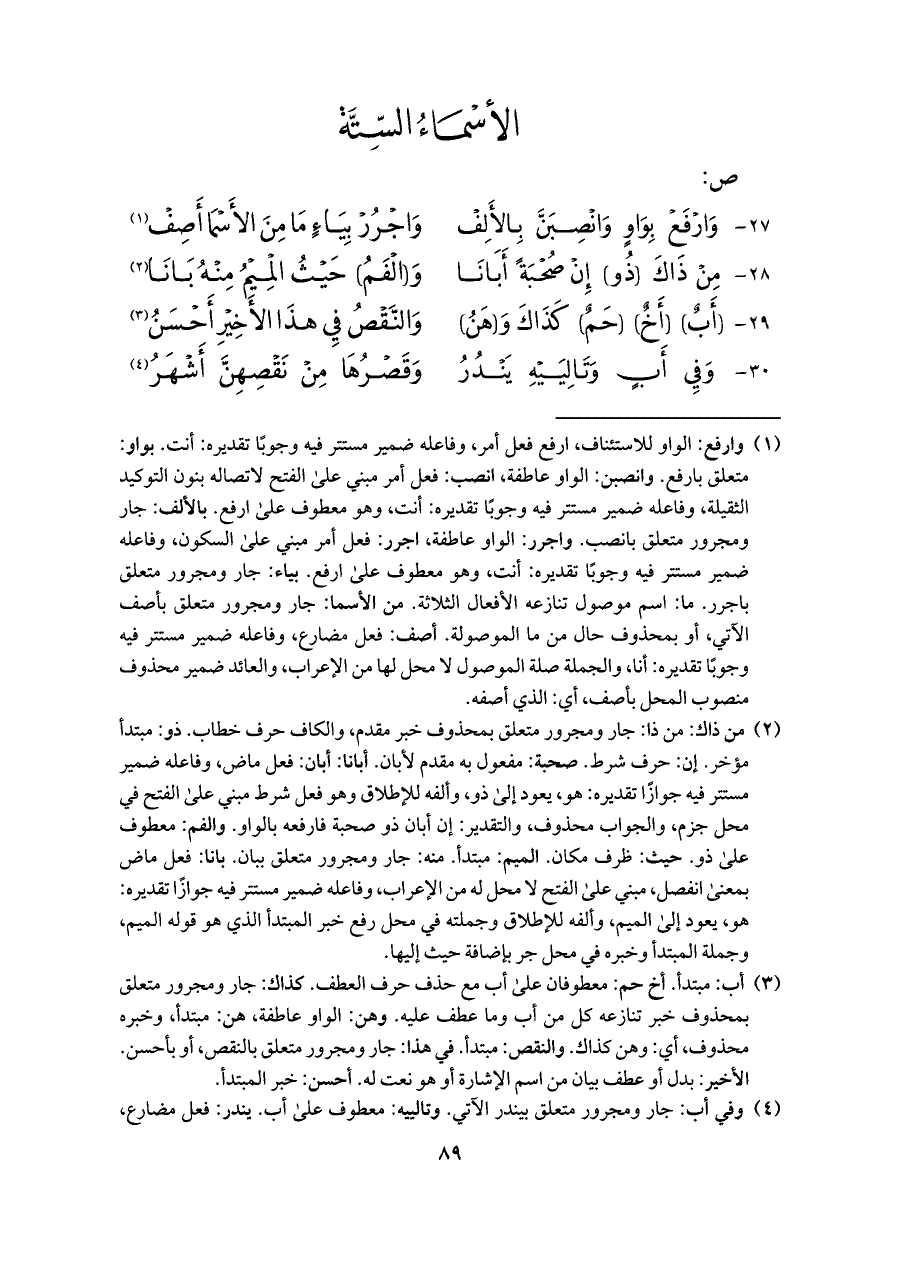 الأَسْمَاءُ السِّتَّة
ص:
٢٧- وَارْفَعْ بِوَاوٍ وَانْصِبَنَّ بِالأَلِفْ وَاجْرُرْ بِيَاءٍ مَا مِنَ الأَسْمَا أَصِفْ(١)
٢٨- مِنْ ذَاكَ (ذُو) إِنْ صُحْبَةً أَبَانَا وَ(الْفَمُ) حَيْثُ الْمِيْمُ مِنْهُ بَانَا(٢)
٢٩- (أَبٌ) (أَخٌ) (حَمٌ) كَذَاكَ وَ(هَنُ) وَالنَّقْصُ فِي هـٰذَا الأَخِيْرِ أَحْسَنُ(٣)
٣٠- وَفِي أَبٍ وَتَالِيَـيْهِ يَنْـدُرُ وَقَصْـرُهَا مِنْ نَقْصِهِنَّ أَشْهَرُ(٤)
(١) وارفع: الواو للاستئناف، ارفع فعل أمر، وفاعله ضمير مستتر فيه وجوبًا تقديره: أنت. بواو:
متعلق بارفع. وانصبن: الواو عاطفة، انصب: فعل أمر مبني علىٰ الفتح لاتصاله بنون التوكيد
الثقيلة، وفاعله ضمير مستتر فيه وجوبًا تقديره: أنت، وهو معطوف علىٰ ارفع. بالألف: جار
ومجرور متعلق بانصب. واجرر: الواو عاطفة، اجرر: فعل أمر مبني علىٰ السكون، وفاعله
ضمير مستتر فيه وجوبًا تقديره: أنت، وهو معطوف علىٰ ارفع. بياء: جار ومجرور متعلق
باجرر. ما: اسم موصول تنازعه الأفعال الثلاثة. من الأسما: جار ومجرور متعلق بأصف
الآتي، أو بمحذوف حال من ما الموصولة. أصف: فعل مضارع، وفاعله ضمير مستتر فيه
وجوبًا تقديره: أنا، والجملة صلة الموصول لا محل لها من الإعراب، والعائد ضمير محذوف
منصوب المحل بأصف، أي: الذي أصفه.
(٢) من ذاك: من ذا: جار ومجرور متعلق بمحذوف خبر مقدم، والكاف حرف خطاب. ذو: مبتدأ
مؤخر. إن: حرف شرط. صحبة: مفعول به مقدم لأبان. أبانا: أبان: فعل ماض، وفاعله ضمير
مستتر فيه جوازًا تقديره: هو، يعود إلىٰ ذو، وألفه للإطلاق وهو فعل شرط مبني علىٰ الفتح في
محل جزم، والجواب محذوف، والتقدير: إن أبان ذو صحبة فارفعه بالواو. والفم: معطوف
علىٰ ذو. حيث: ظرف مكان. الميم: مبتدأ. منه: جار ومجرور متعلق ببان. بانا: فعل ماض
بمعنىٰ انفصل، مبني علىٰ الفتح لا محل له من الإعراب، وفاعله ضمير مستتر فيه جوازًا تقديره:
هو، يعود إلىٰ الميم، وألفه للإطلاق وجملته في محل رفع خبر المبتدأ الذي هو قوله الميم،
وجملة المبتدأ وخبره في محل جر بإضافة حيث إليها.
(٣) أب: مبتدأ. أخ حم: معطوفان علىٰ أب مع حذف حرف العطف. كذاك: جار ومجرور متعلق
بمحذوف خبر تنازعه كل من أب وما عطف عليه. وهن: الواو عاطفة، هن: مبتدأ، وخبره
محذوف، أي: وهن كذاك. والنقص: مبتدأ. في هذا: جار ومجرور متعلق بالنقص، أو بأحسن.
الأخير: بدل أو عطف بيان من اسم الإشارة أو هو نعت له. أحسن: خبر المبتدأ.
(٤) وفي أب: جار ومجرور متعلق بيندر الآتي. وتالييه: معطوف علىٰ أب. يندر: فعل مضارع،
٨٩